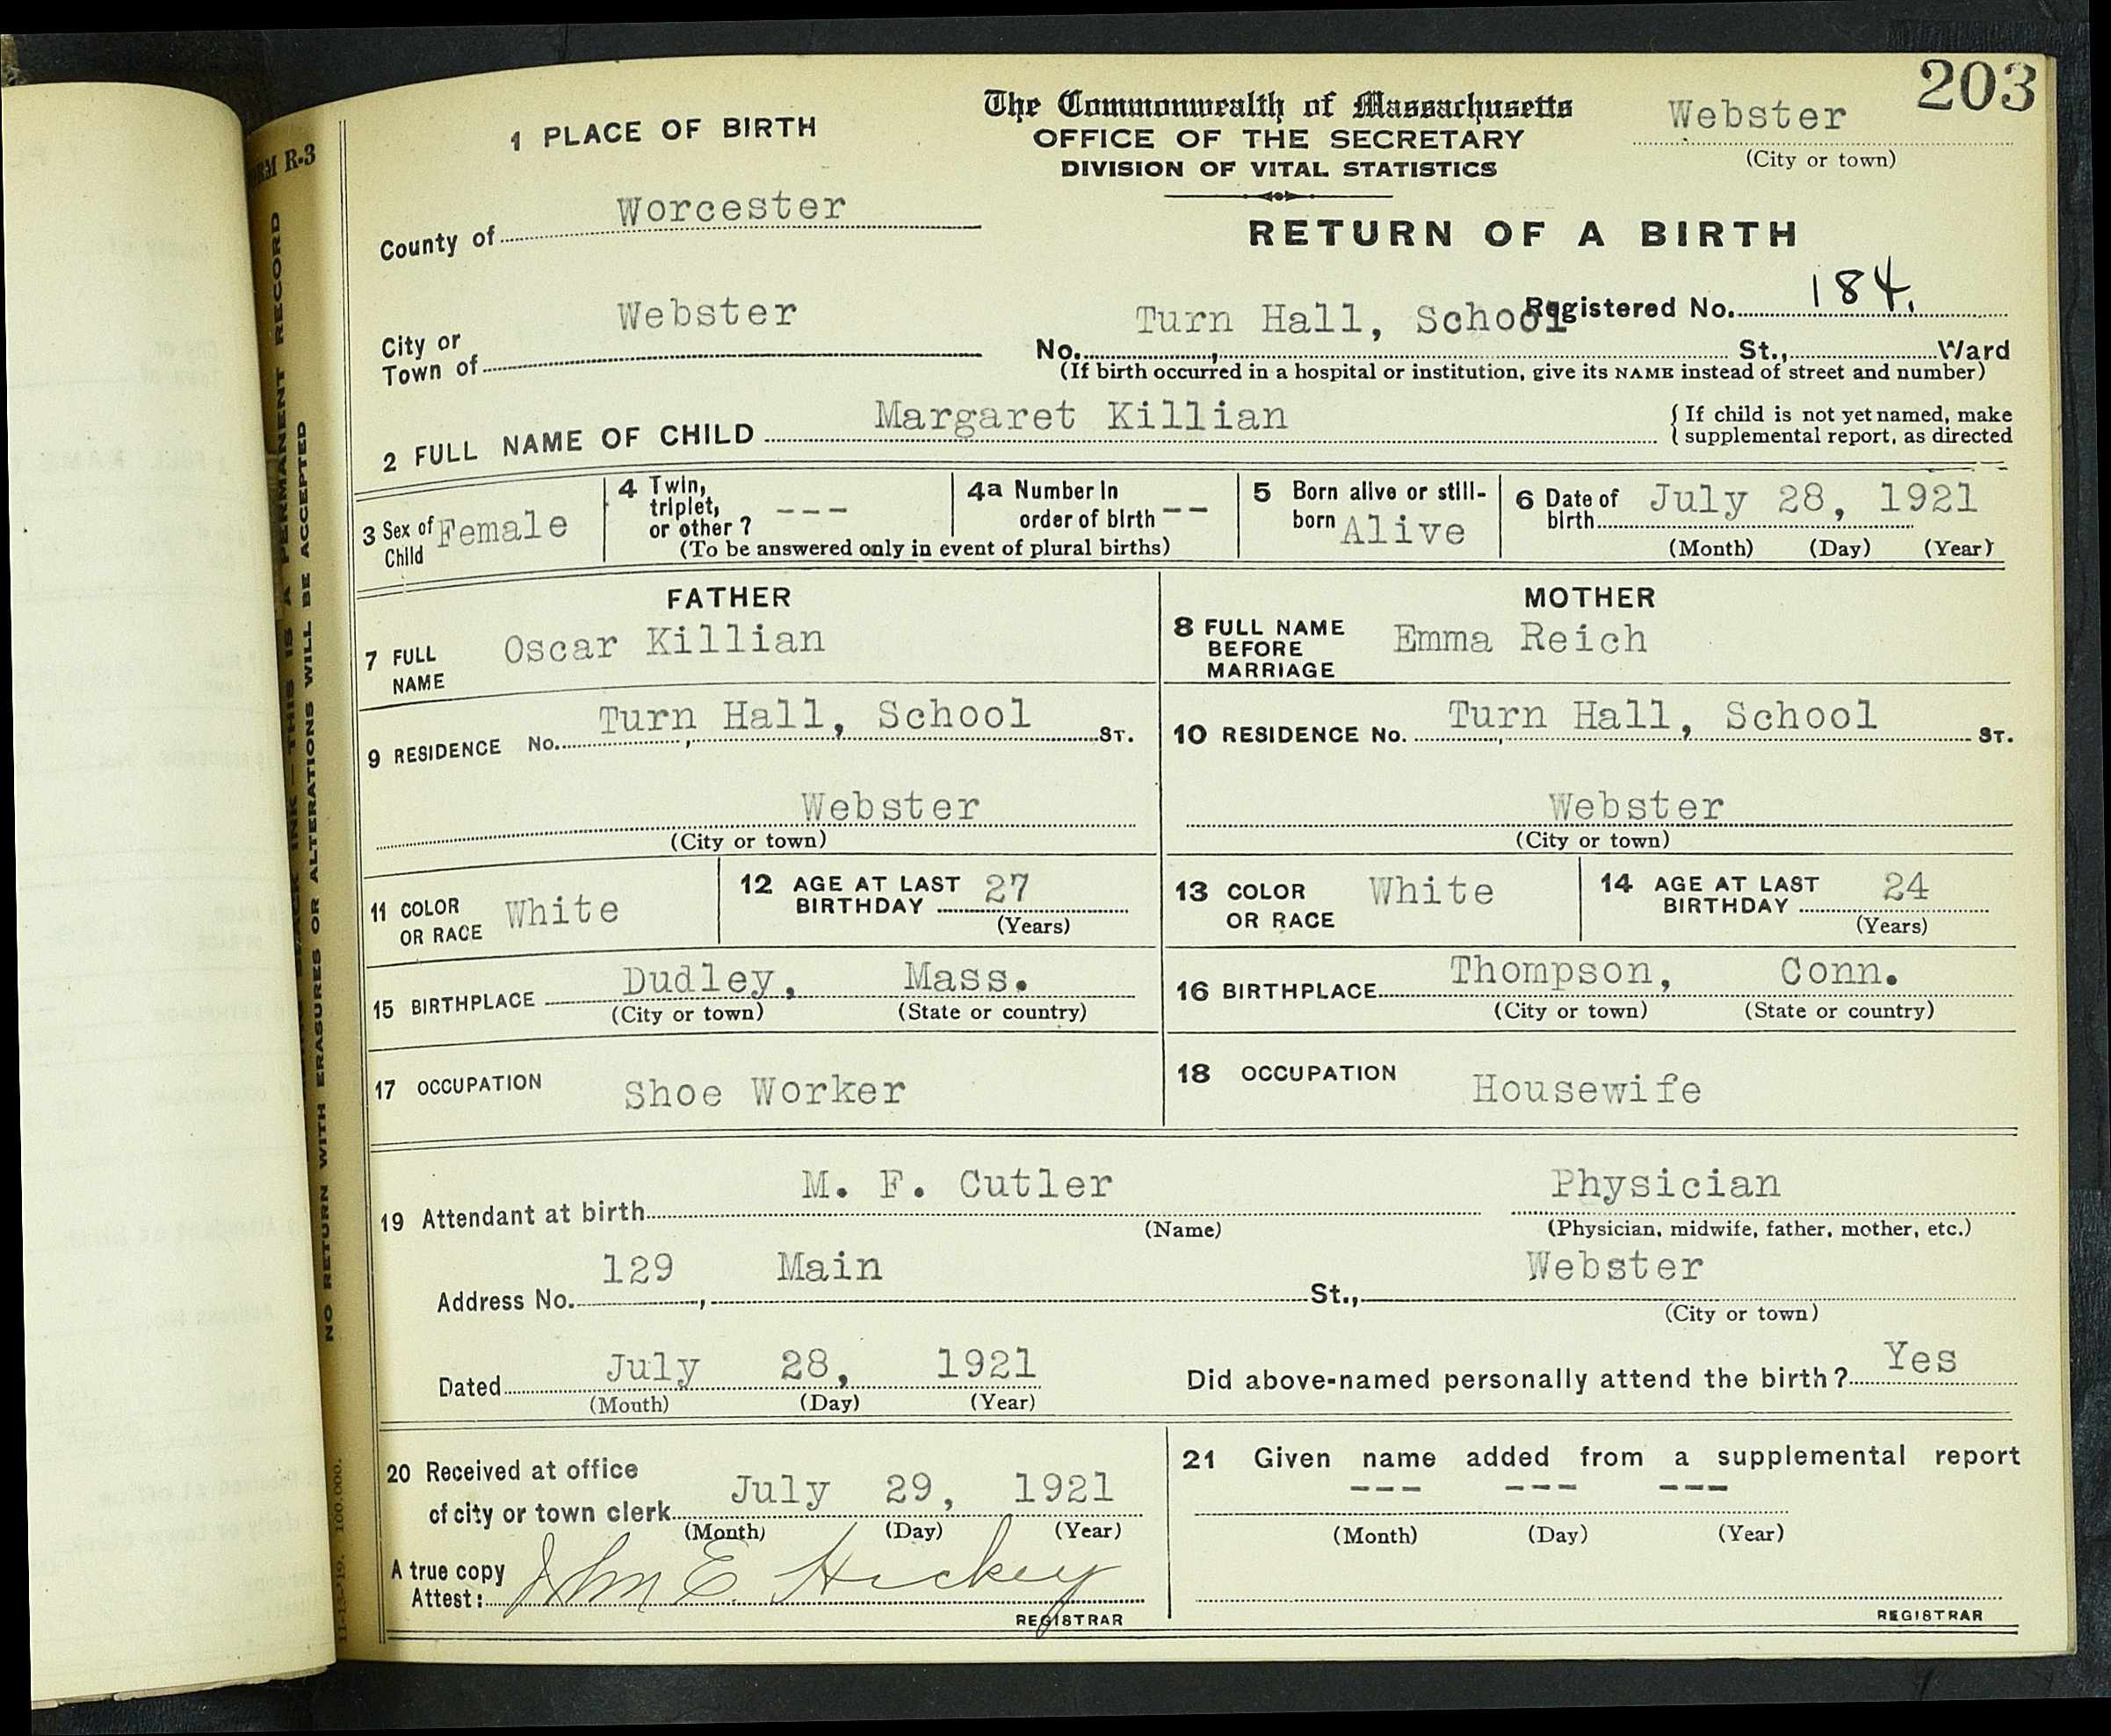 203
The Commonwealth of Massachusetts
OFFICE OF THE SECRETARY
DIVISION OF VITAL STATISTICS
Webster
(City or town)
1 PLACE OF BIRTH
FORM R-3
County of Worcester
RETURN OF A BIRTH
Registered No. 184.
City or Town of Webster
No. Turn Hall, School St., Ward
(If birth occurred in a hospital or institution, give its NAME instead of street and number)
2 FULL NAME OF CHILD Margaret Killian
{ If child is not yet named, make
supplemental report, as directed
3 Sex of Child Female
4 Twin, triplet, or other? ---
4a Number in order of birth --
(To be answered only in event of plural births)
5 Born alive or still-born Alive
6 Date of birth July 28, 1921
(Month) (Day) (Year)
FATHER
MOTHER
7 FULL NAME Oscar Killian
8 FULL NAME BEFORE MARRIAGE Emma Reich
9 RESIDENCE No. Turn Hall, School ST.
10 RESIDENCE No. Turn Hall, School ST.
Webster
(City or town)
Webster
(City or town)
11 COLOR OR RACE White
12 AGE AT LAST BIRTHDAY 27
(Years)
13 COLOR OR RACE White
14 AGE AT LAST BIRTHDAY 24
(Years)
15 BIRTHPLACE Dudley, Mass.
(City or town) (State or country)
16 BIRTHPLACE Thompson, Conn.
(City or town) (State or country)
17 OCCUPATION Shoe Worker
18 OCCUPATION Housewife
19 Attendant at birth M. F. Cutler Physician
(Name) (Physician, midwife, father, mother, etc.)
Address No. 129, Main St., Webster
(City or town)
Dated July 28, 1921
(Month) (Day) (Year)
Did above-named personally attend the birth? Yes
20 Received at office
of city or town clerk July 29, 1921
(Month) (Day) (Year)
A true copy
Attest: John E. Hickey
REGISTRAR
21 Given name added from a supplemental report
--- --- ---
(Month) (Day) (Year)
REGISTRAR
INK—THIS IS A PERMANENT RECORD
NO RETURN WITH ERASURES OR ALTERATIONS WILL BE ACCEPTED
11-13-'19. 100,000.